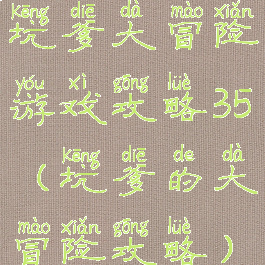 kēng diē dà mào xiǎn
坑爹大冒险
yóu xì gōng lüè
游戏攻略35
kēng diē de dà
(坑爹的大
mào xiǎn gōng lüè
冒险攻略)